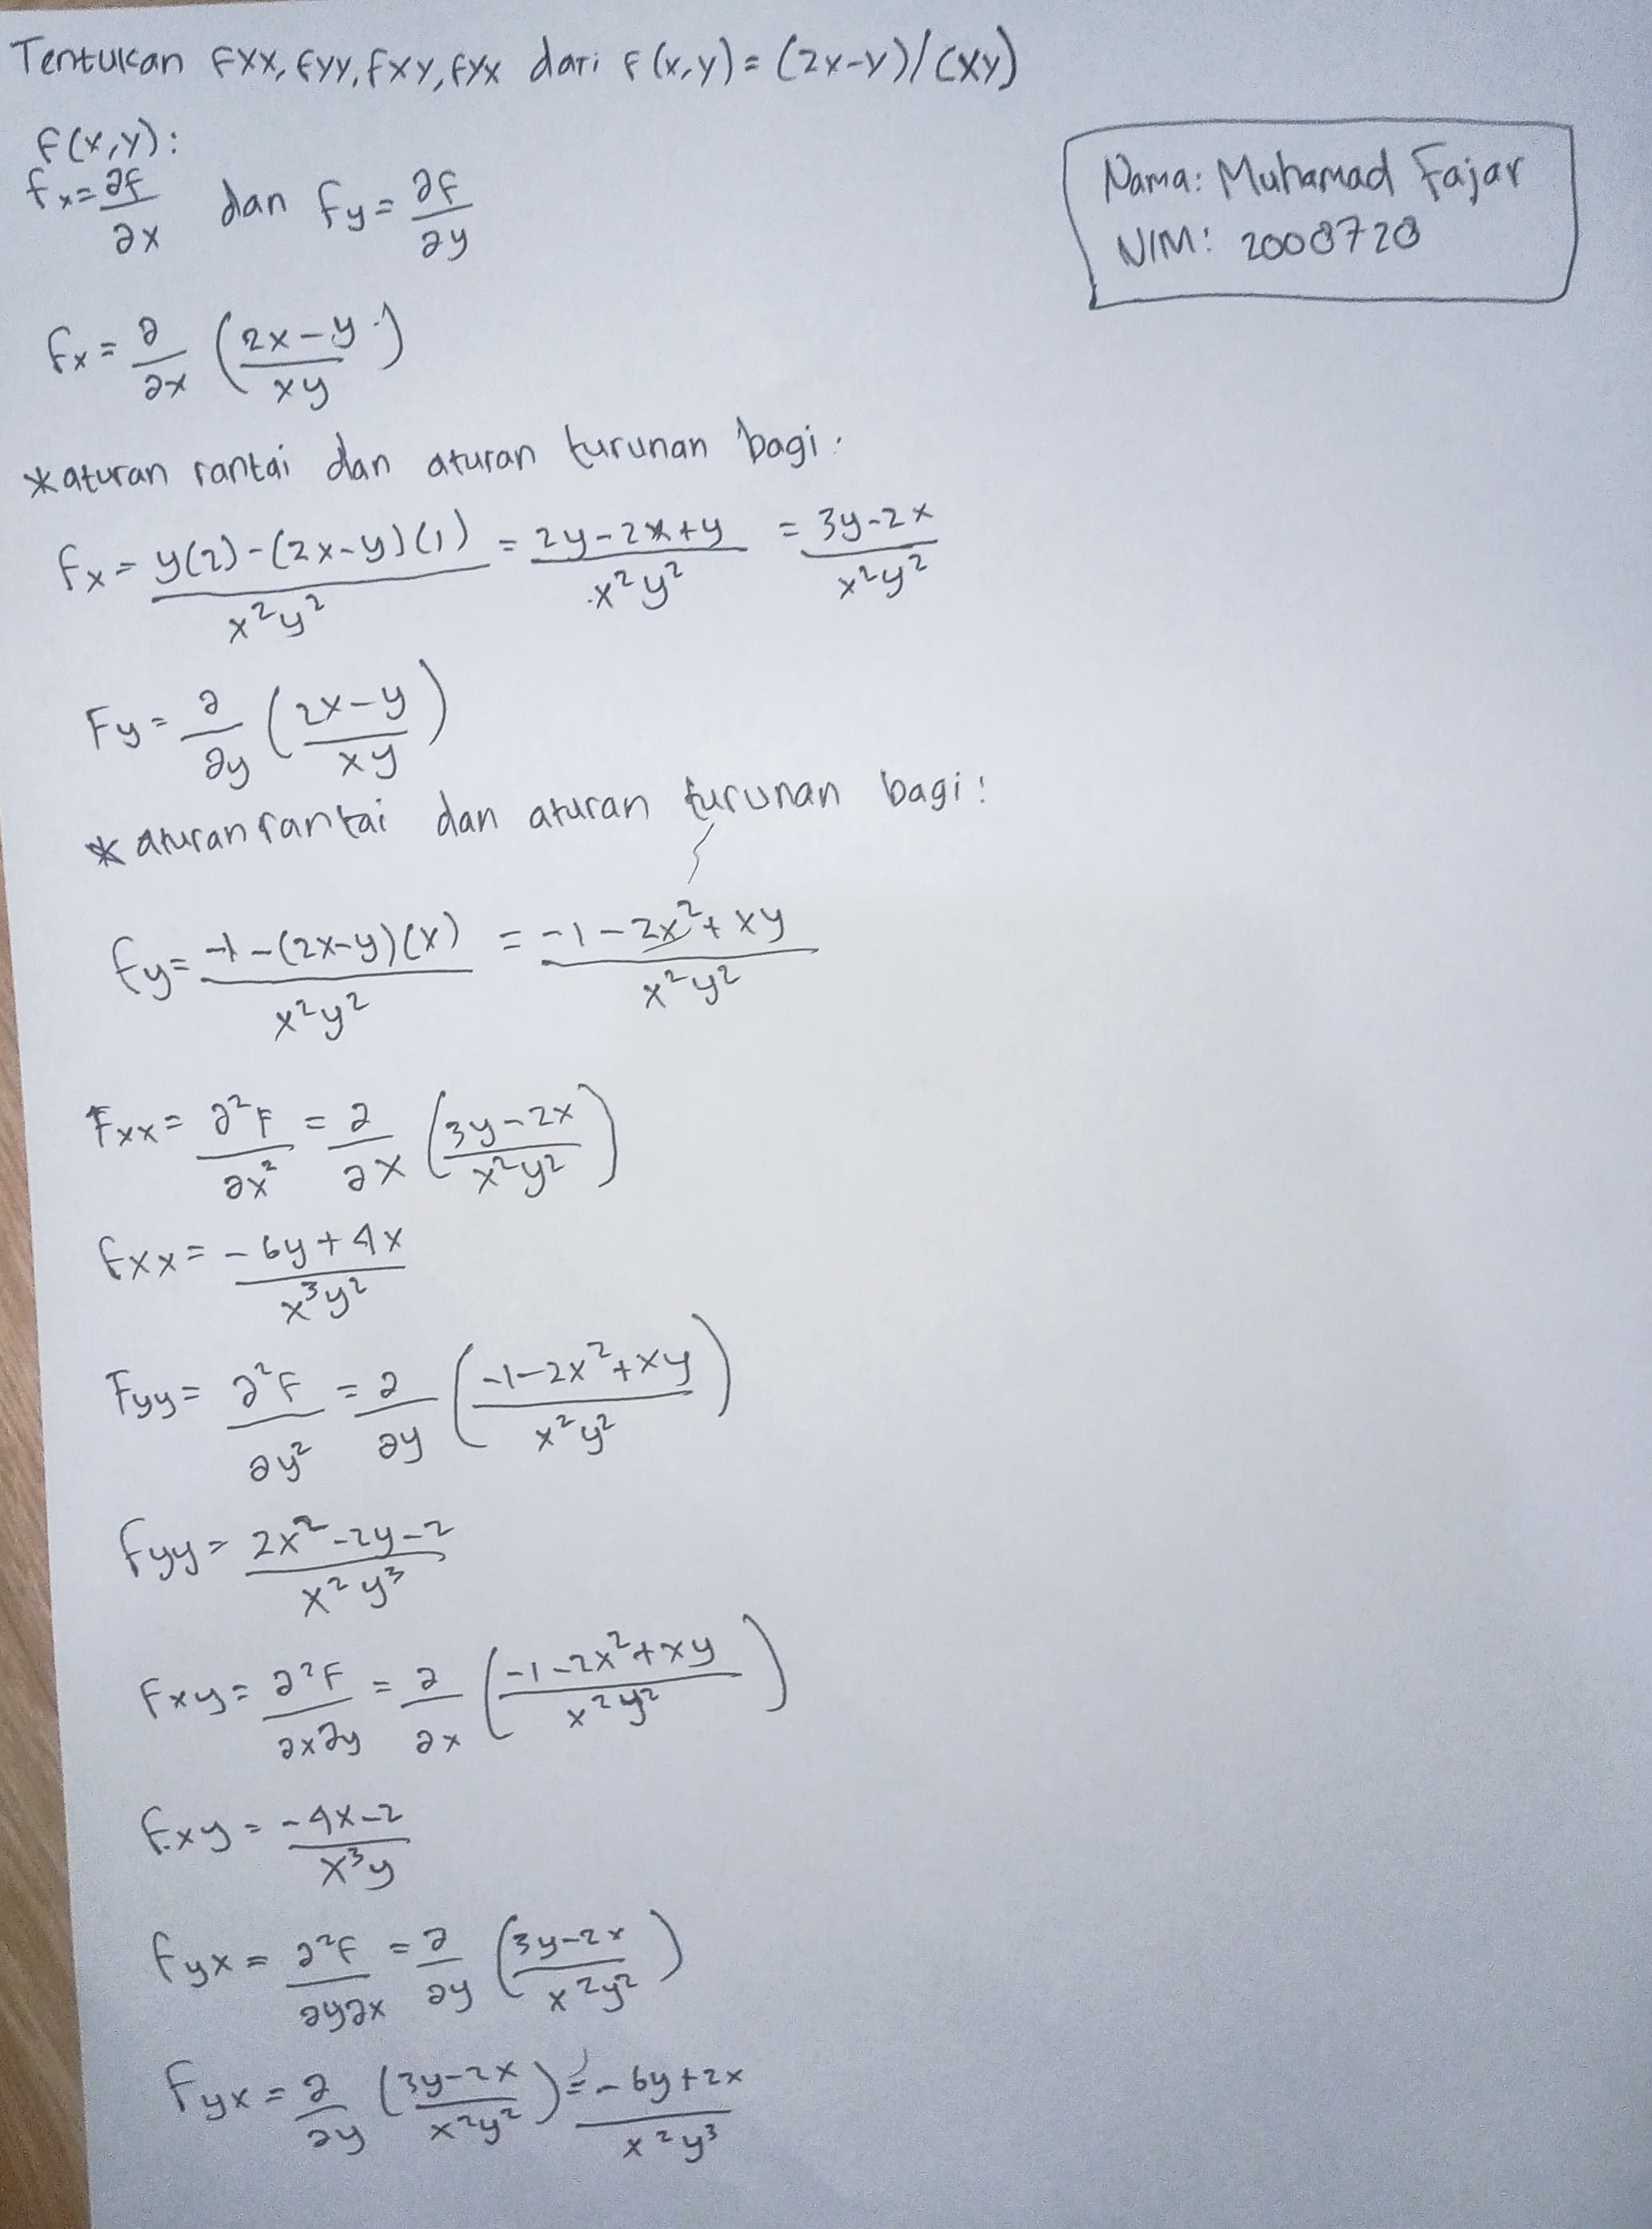 Tentukan fxx, fyy, fxy, fyx dari f(x,y) = (2x-y)/(xy)
f(x,y):
fx = ∂f/∂x dan fy = ∂f/∂y
Nama: Muhamad Fajar
NIM: 2008720
fx = ∂/∂x ((2x-y)/xy)
*aturan rantai dan aturan turunan bagi:
fx = (y(2)-(2x-y)(1))/x²y² = (2y-2x+y)/x²y² = (3y-2x)/x²y²
Fy = ∂/∂y ((2x-y)/xy)
*aturan rantai dan aturan turunan bagi:
fy = (-1-(2x-y)(x))/x²y² = (-1-2x²+xy)/x²y²
Fxx = ∂²F/∂x² = ∂/∂x ((3y-2x)/x²y²)
fxx = (-6y+4x)/x³y²
Fyy = ∂²F/∂y² = ∂/∂y ((-1-2x²+xy)/x²y²)
fyy = (2x²-2y-2)/x²y³
Fxy = ∂²F/∂x∂y = ∂/∂x ((-1-2x²+xy)/x²y²)
fxy = (-4x-2)/x³y
fyx = ∂²F/∂y∂x = ∂/∂y ((3y-2x)/x²y²)
Fyx = ∂/∂y ((3y-2x)/x²y²) = (-6y+2x)/x²y³